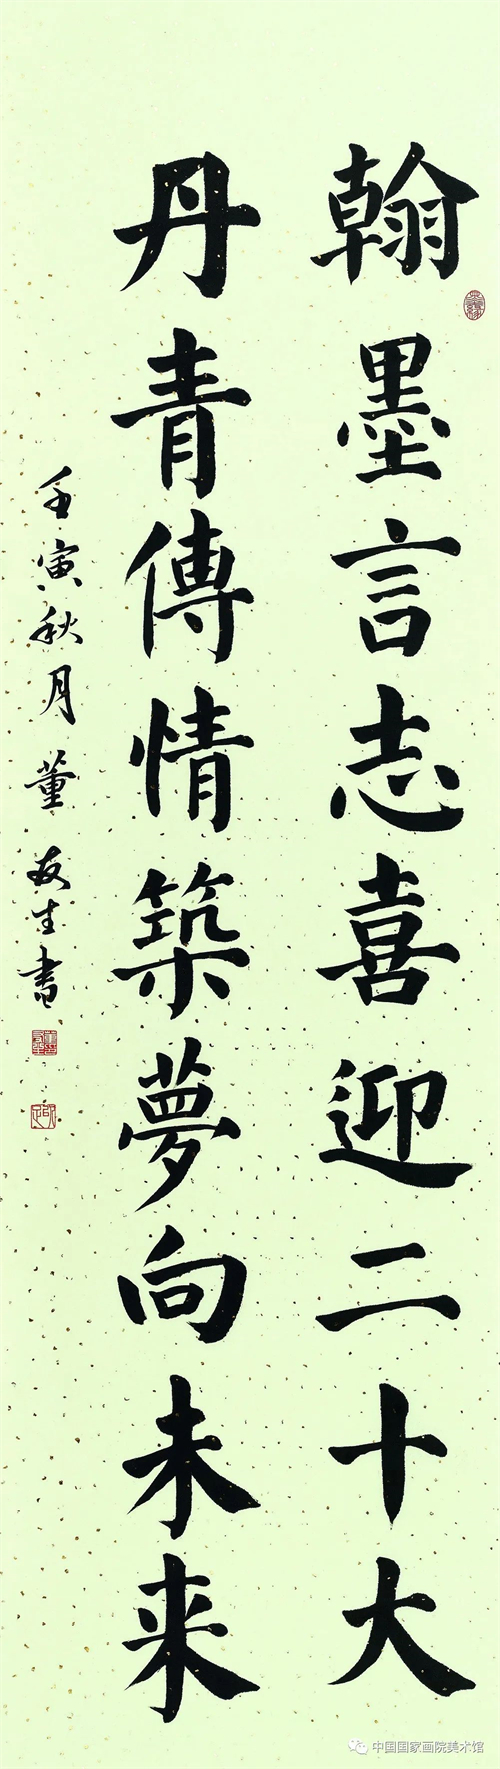 翰墨言志喜迎二十大
丹青傳情築夢向未来
壬寅秋月董友生書
中国国家画院美术馆